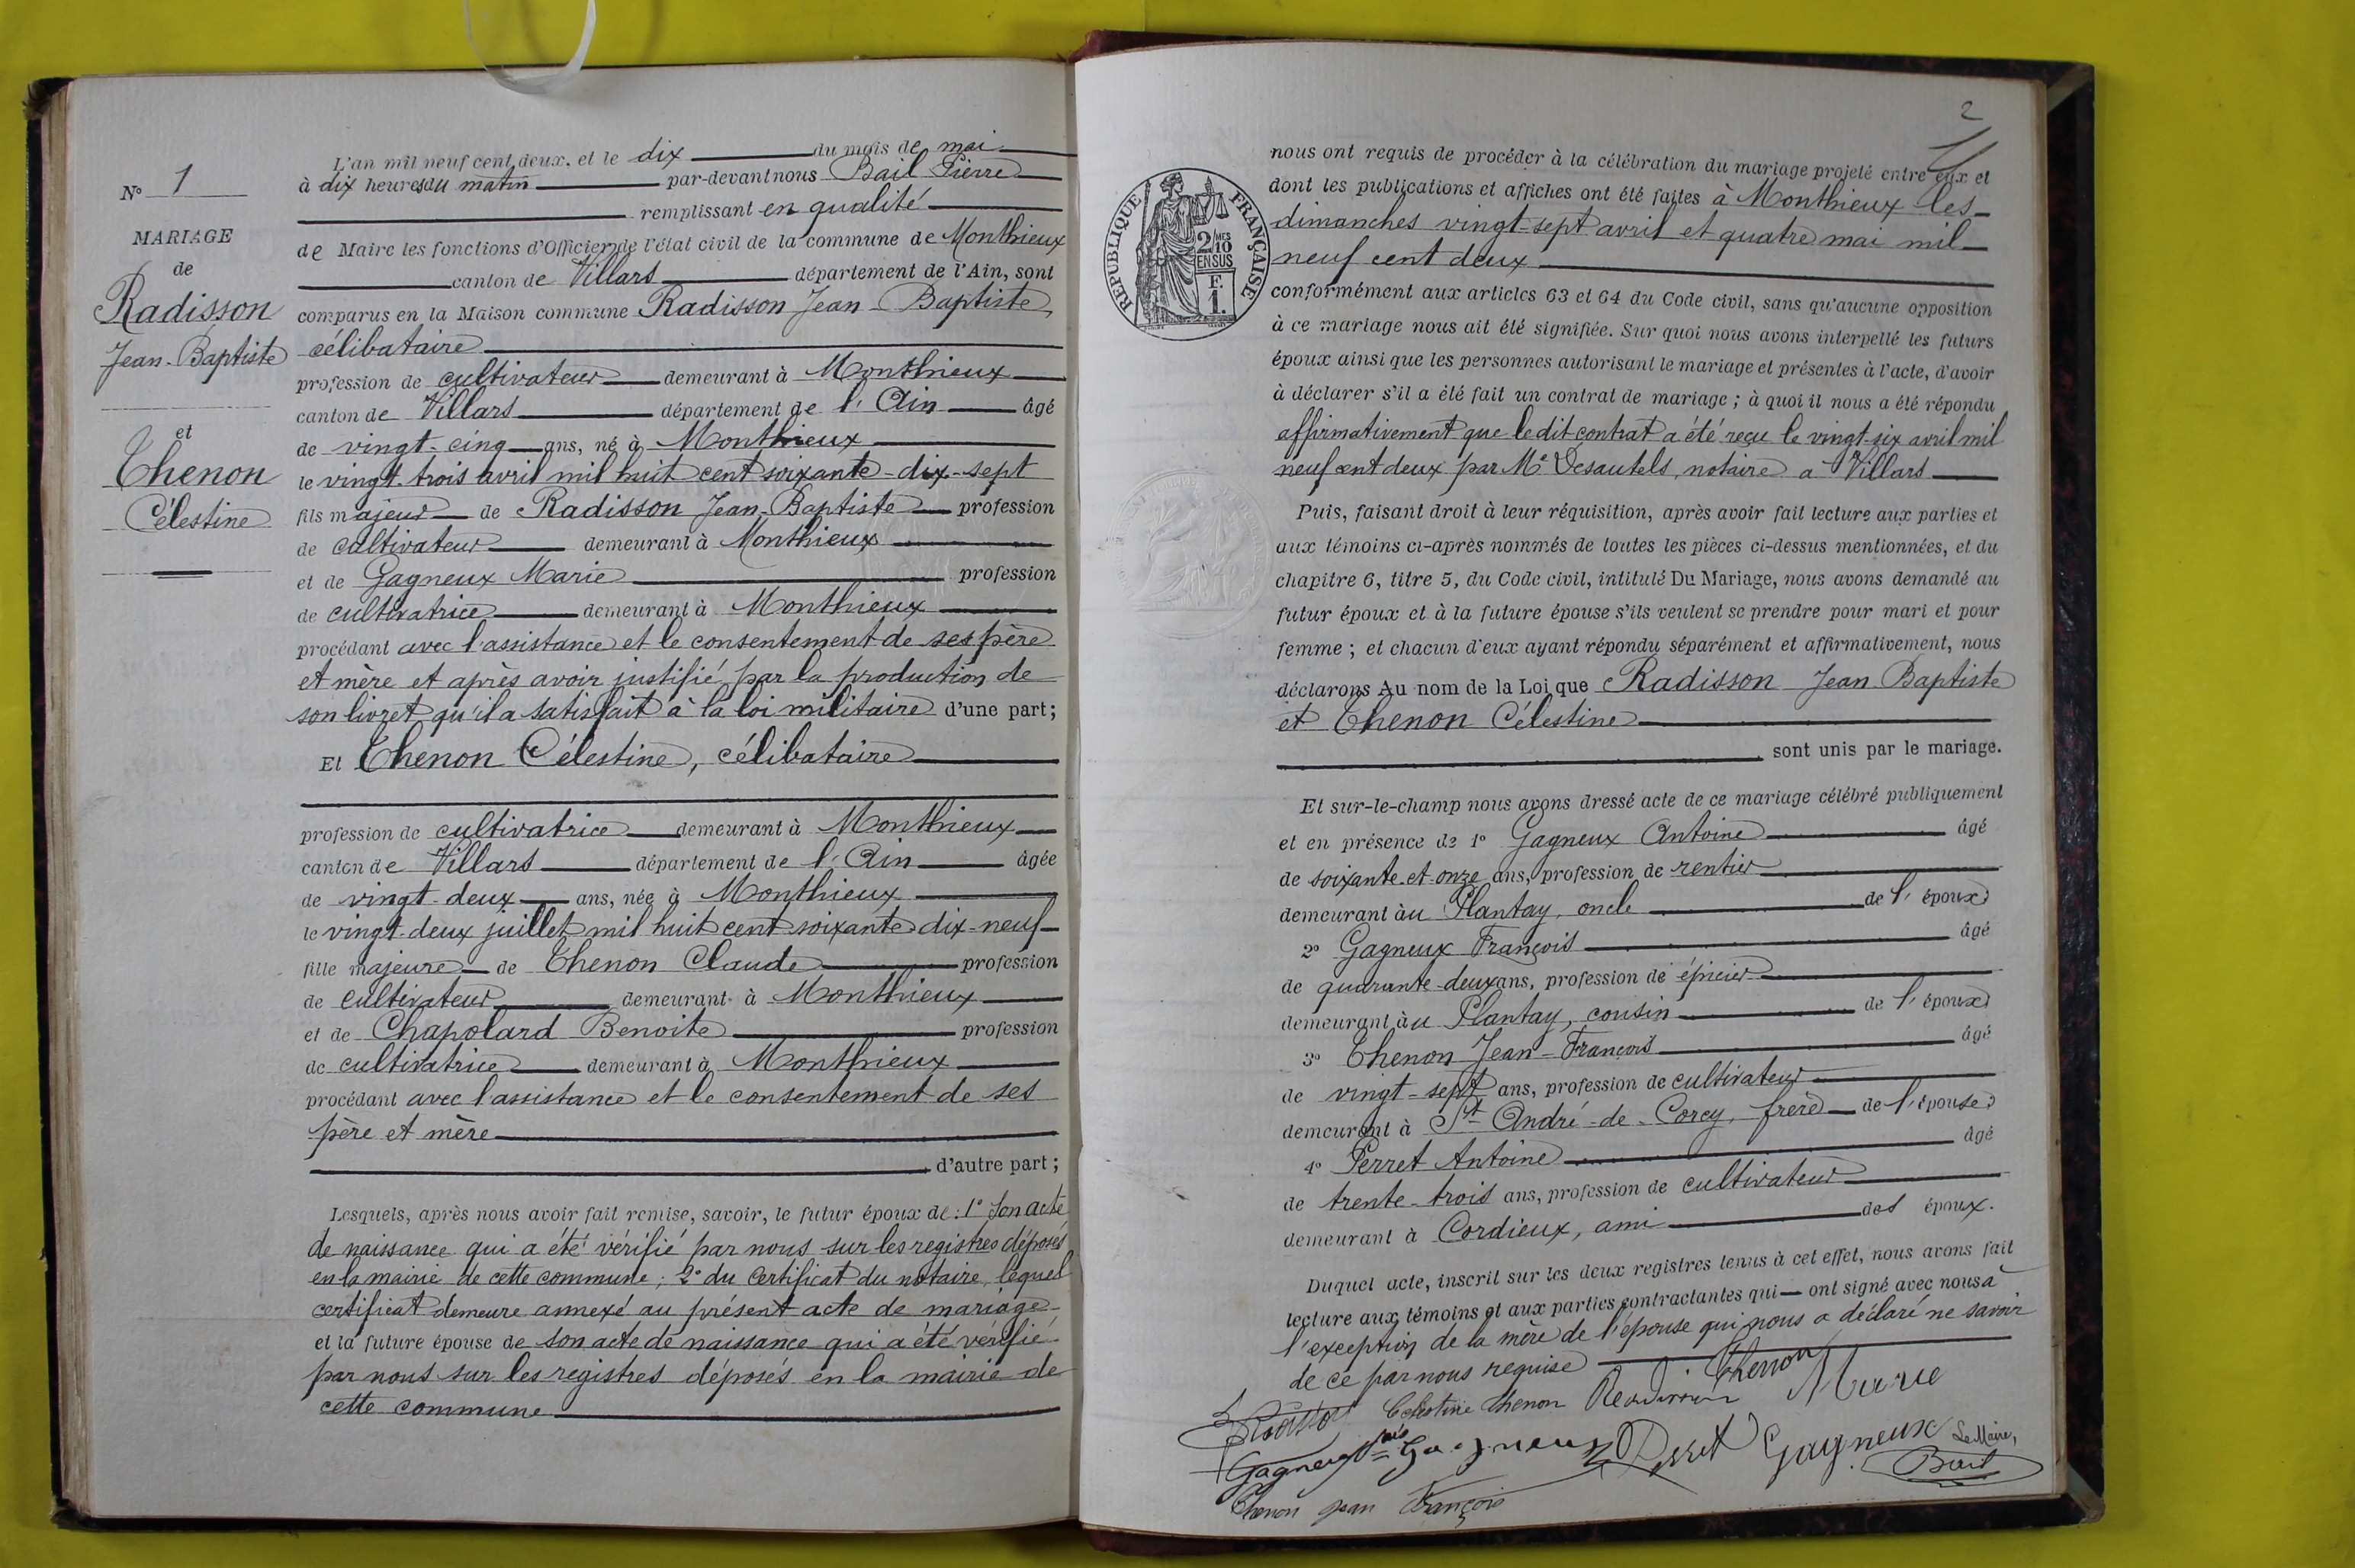 N° 1
MARIAGE
de
Radisson
Jean-Baptiste
et
Thenon
Célestine
L'an mil neuf cent deux, et le dix du mois de mai
à dix heures du matin par-devant nous Bail Pierre
remplissant en qualité
de Maire les fonctions d'Officier de l'état civil de la commune de Monthieux
canton de Villars département de l'Ain, sont
comparus en la Maison commune Radisson Jean-Baptiste,
célibataire
profession de cultivateur demeurant à Monthieux
canton de Villars département de l'Ain âgé
de vingt-cinq ans, né à Monthieux
le vingt-trois avril mil huit cent soixante-dix-sept
fils majeur de Radisson Jean-Baptiste profession
de cultivateur demeurant à Monthieux
et de Gagneux Marie profession
de cultivatrice demeurant à Monthieux
procédant avec l'assistance et le consentement de ses père
et mère et après avoir justifié par la production de
son livret qu'il a satisfait à la loi militaire d'une part;
Et Thenon Célestine, célibataire
profession de cultivatrice demeurant à Monthieux
canton de Villars département de l'Ain âgée
de vingt-deux ans, née à Monthieux
le vingt-deux juillet mil huit cent soixante dix-neuf
fille majeure de Thenon Claude profession
de cultivateur demeurant à Monthieux
et de Chapolard Benoite profession
de cultivatrice demeurant à Monthieux
procédant avec l'assistance et le consentement de ses
père et mère
d'autre part;
Lesquels, après nous avoir fait remise, savoir, le futur époux de: 1° Son acte
de naissance qui a été vérifié par nous sur les registres déposés
en la mairie de cette commune; 2° du Certificat du notaire, lequel
certificat demeure annexé au présent acte de mariage
et la future épouse de son acte de naissance qui a été vérifié
par nous sur les registres déposés en la mairie de
cette commune
2
RÉPUBLIQUE FRANÇAISE
2/MES
10
EN SUS
F.
1.
nous ont requis de procéder à la célébration du mariage projeté entre eux et
dont les publications et affiches ont été faites à Monthieux les
dimanches vingt-sept avril et quatre mai mil
neuf cent deux
conformément aux articles 63 et 64 du Code civil, sans qu'aucune opposition
à ce mariage nous ait été signifiée. Sur quoi nous avons interpellé les futurs
époux ainsi que les personnes autorisant le mariage et présentes à l'acte, d'avoir
à déclarer s'il a été fait un contrat de mariage; à quoi il nous a été répondu
affirmativement que ledit contrat a été reçu le vingt-six avril mil
neuf cent deux par Me Desautels, notaire a Villars
Puis, faisant droit à leur réquisition, après avoir fait lecture aux parties et
aux témoins ci-après nommés de toutes les pièces ci-dessus mentionnées, et du
chapitre 6, titre 5, du Code civil, intitulé Du Mariage, nous avons demandé au
futur époux et à la future épouse s'ils veulent se prendre pour mari et pour
femme; et chacun d'eux ayant répondu séparément et affirmativement, nous
déclarons Au nom de la Loi que Radisson Jean Baptiste
et Thenon Célestine
sont unis par le mariage.
Et sur-le-champ nous avons dressé acte de ce mariage célébré publiquement
et en présence de 1° Gagneux Antoine âgé
de soixante-et-onze ans, profession de rentier
demeurant au Plantay, oncle de l'époux
2° Gagneux François âgé
de quarante-deux ans, profession de épicier
demeurant au Plantay, cousin de l'époux
3° Thenon Jean-François âgé
de vingt-sept ans, profession de cultivateur
demeurant à St André-de-Corcy, frère de l'épouse
4° Perret Antoine âgé
de trente-trois ans, profession de cultivateur
demeurant à Cordieux, ami des époux.
Duquel acte, inscrit sur les deux registres tenus à cet effet, nous avons fait
lecture aux témoins et aux parties contractantes qui ont signé avec nous à
l'exception de la mère de l'épouse qui nous a déclaré ne savoir
de ce par nous requise
Thenon
Celestine Thenon Radisson Marie
Gagneux Gagneux Perret Gagneux Le Maire,
Bail
Thenon jean François